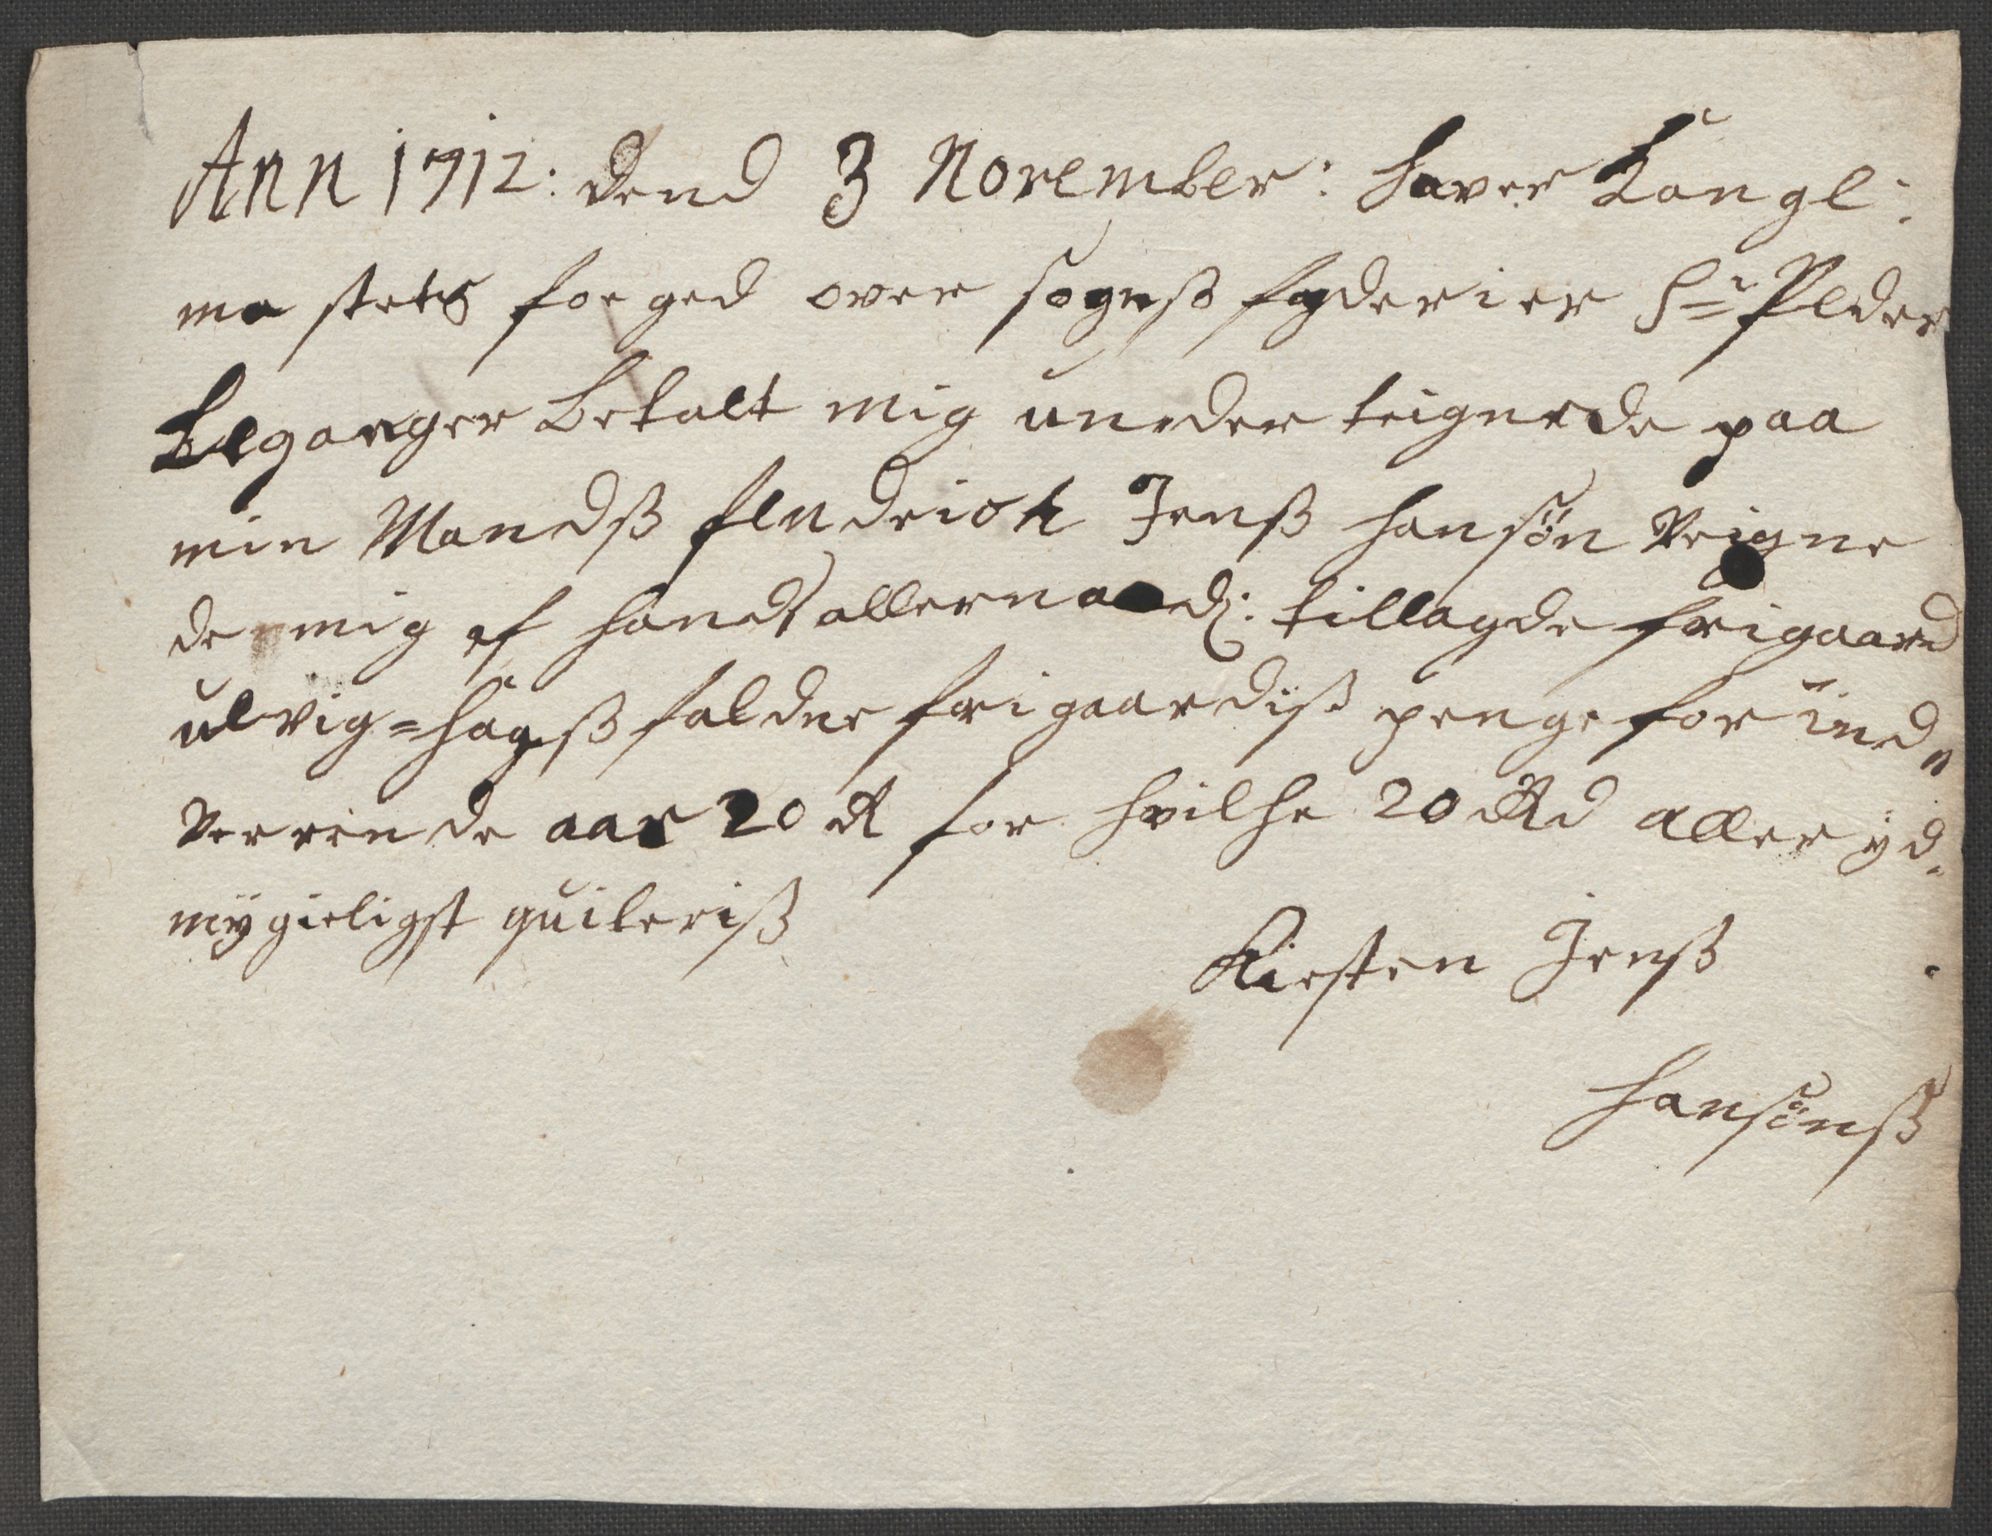 Ann 1712: dend 3 November: haver Kongl:
ma stets foeged over sognß fogderier Sr Peder
Leganger betalt mig under teignede paa
min Mandß fendrich Jenß hansøn Veigne
de mig af hands allernaad: tillagde frigaard
ulvig=hagß faldne frigaardiß penge for ind„
Verrende aar 20 rd for hvilke 20 Rd aller yd„
mygieligst quiteriß
Kirsten Jenß
hansønß